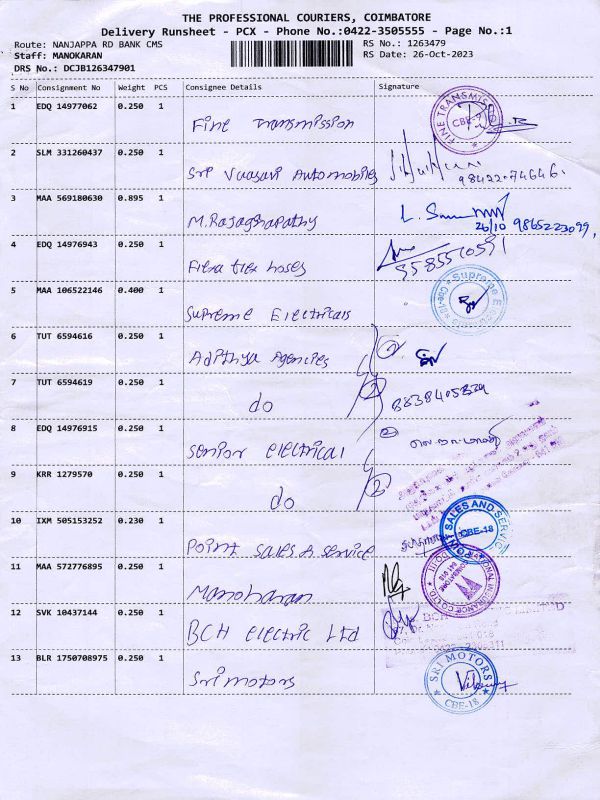 THE PROFESSIONAL COURIERS, COIMBATORE
Delivery Runsheet - PCX - Phone No.:0422-3505555 - Page No.:1
Route: NANJAPPA RD BANK CMS
RS No.: 1263479
Staff: MANOKARAN
RS Date: 26-Oct-2023
DRS No.: DCJB126347901
S No Consignment No Weight PCS Consignee Details Signature
1 EDQ 14977062 0.250 1 Fine Transmission
FINE TRANSMISSION CBE-9
2 SLM 331260437 0.250 1 Sri Vaasavi Automobiles
98422-74646.
3 MAA 569180630 0.895 1 M.Rajagopathy
26/10 9865223099,
4 EDQ 14976943 0.250 1 Fiera tex hoses
5 MAA 106522146 0.400 1 Supreme Electricals
Supreme
6 TUT 6594616 0.250 1 Adithya Agencies
7 TUT 6594619 0.250 1 do
2
8838405324
8 EDQ 14976915 0.250 1 senior electrical
2
9 KRR 1279570 0.250 1 do
2
10 IXM 505153252 0.230 1 Point sales & service
SALES AND SERVICE CBE-18
11 MAA 572776895 0.250 1 Manoharan
12 SVK 10437144 0.250 1 BCH electric Ltd
BCH LIMITED
13 BLR 1750708975 0.250 1 Sri motors
SRI MOTORS CBE-18